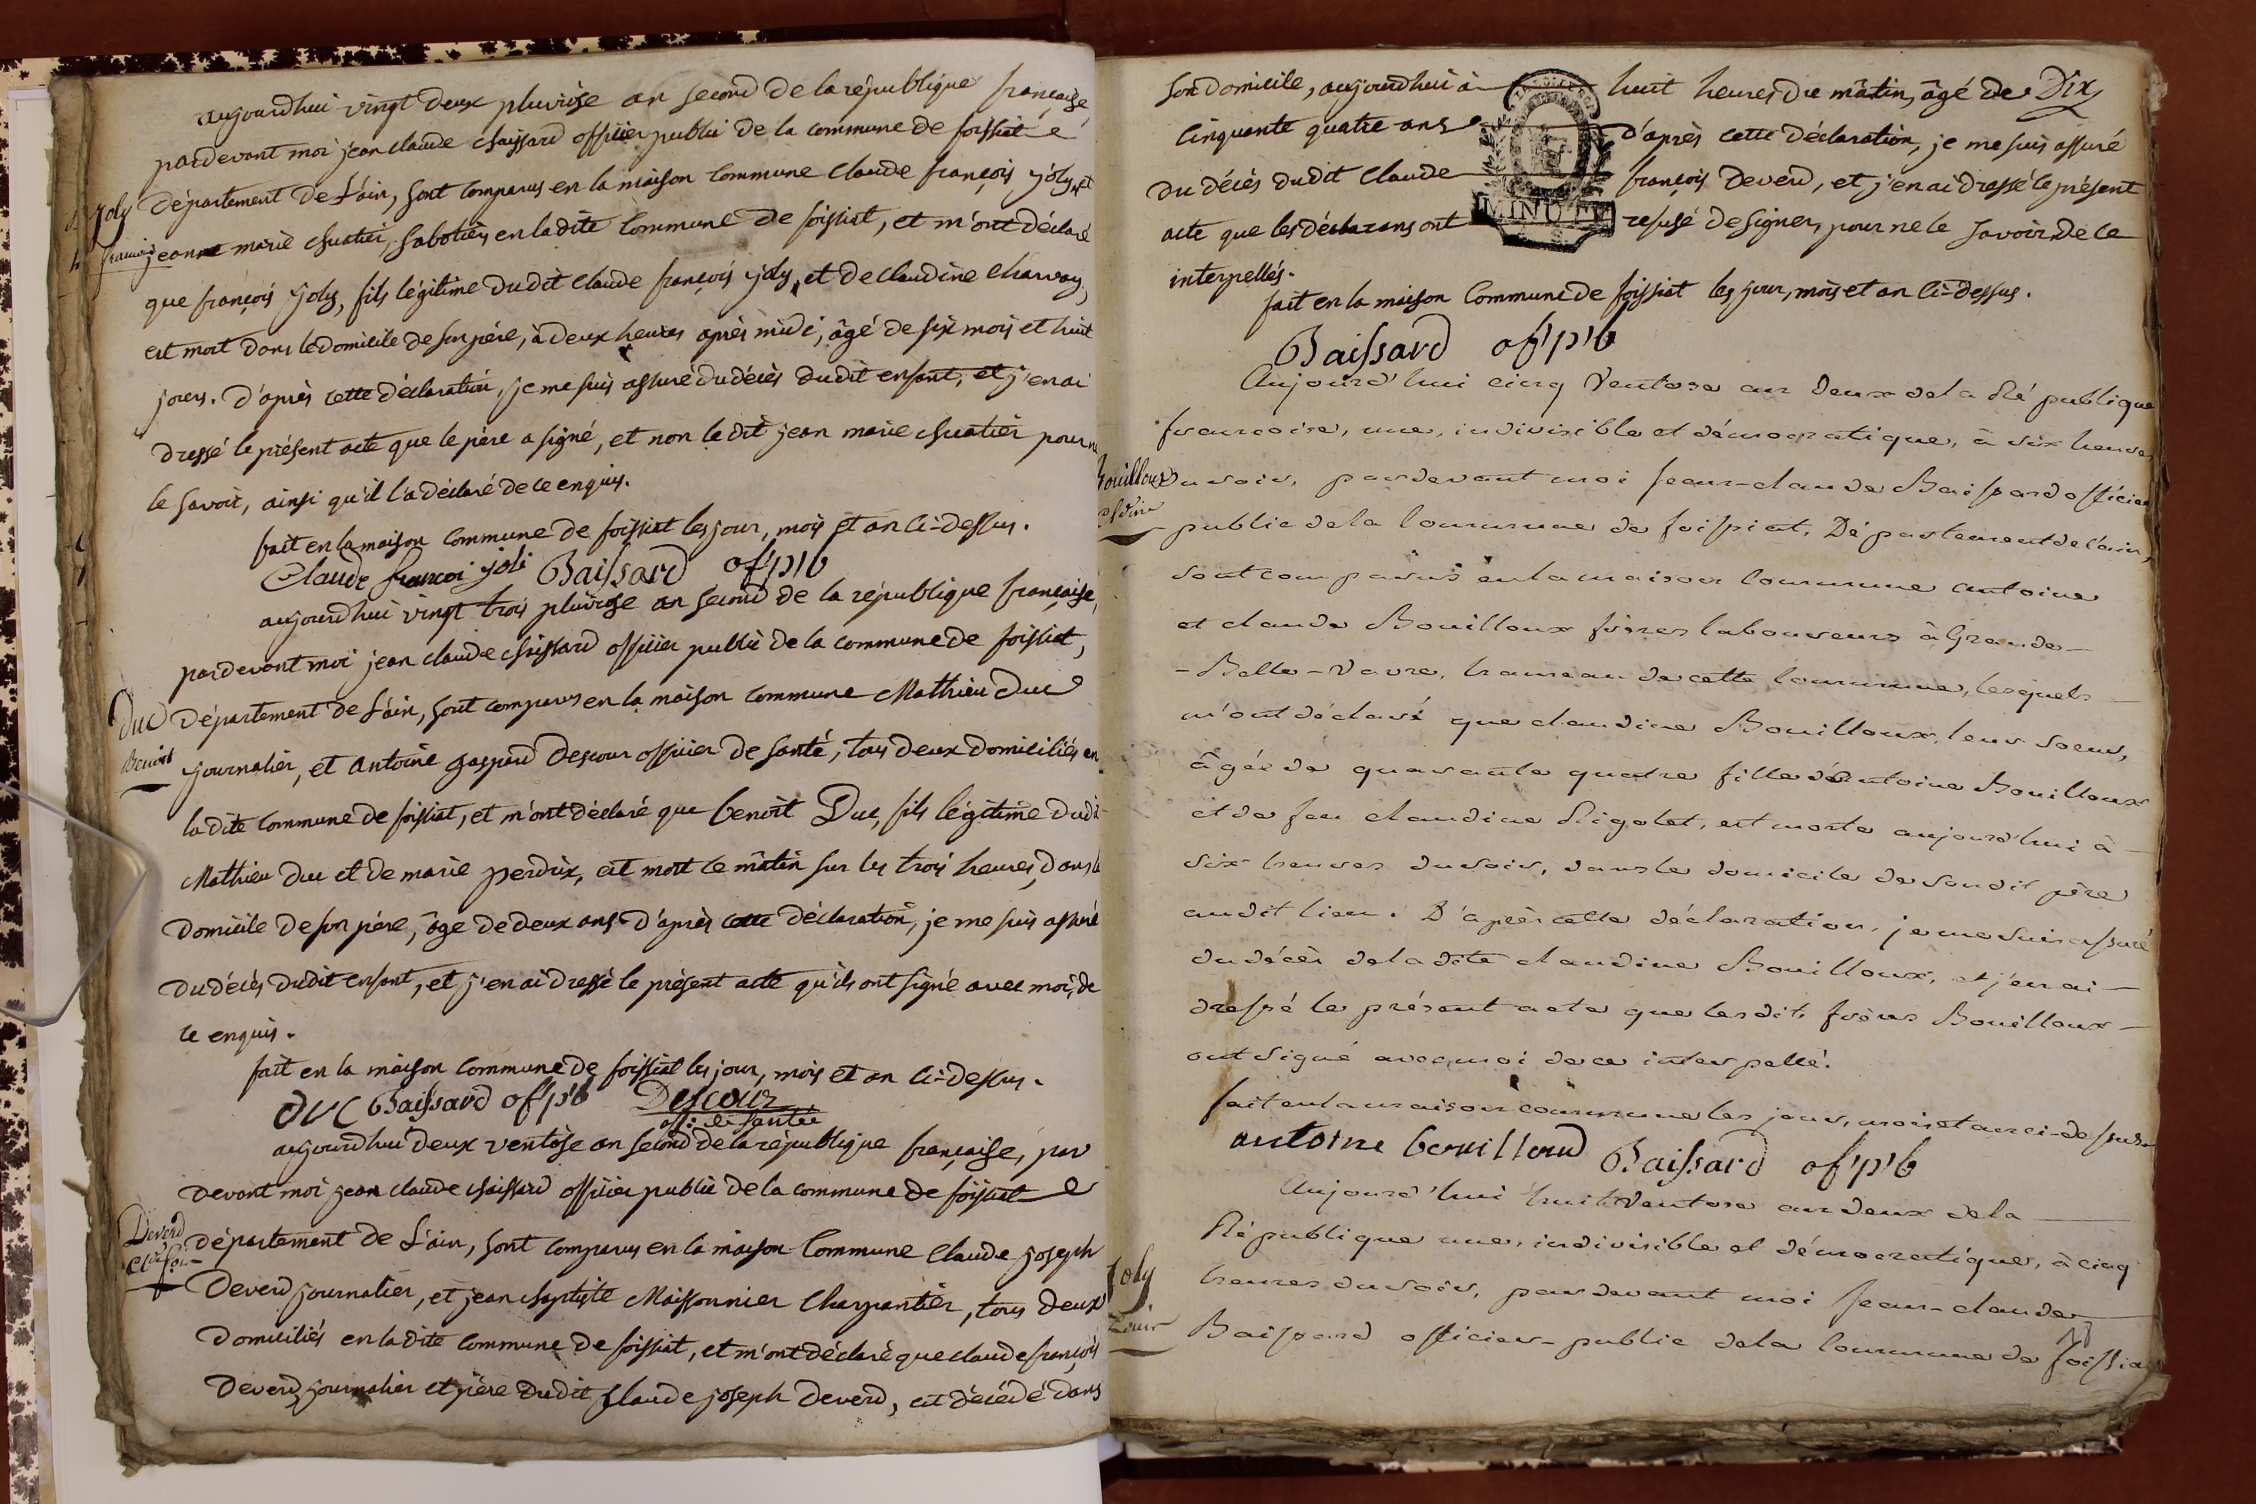 aujourdhui vingt deux pluviose an second de la république française,
pardevant moi jean claude chaissard officier public de la commune de foissiat
département de L'ain, sont comparus en la maison commune claude françois joly, et
Joly
françois
jeanne marie chuatier, sabotier, en la dite commune de foissiat, et m'ont déclaré
que françois joly, fils légitime du dit claude françois joly, et de claudine charvay,
est mort dans le domicile de son père, à deux heures après midi, âgé de six mois et huit
jours. d'après cette déclaration, je me suis assuré du décès du dit enfant, et j'en ai
dressé le présent acte que le père a signé, et non le dit jean marie chuatier pour ne
le savoir, ainsi qu'il l'a déclaré de ce enquis.
fait en la maison commune de foissiat les jour, mois et an ci-dessus.
Claude francoi joli Baissard of'p'b
aujourdhui vingt trois pluviose an second de la république française,
pardevant moi jean claude chaissard officier public de la commune de foissiat,
Duc
Benoit
département de L'ain, sont comparus en la maison commune Mathieu Duc
journalier, et antoine gaspard descour officier de santé, tous deux domiciliés en
la dite commune de foissiat, et m'ont déclaré que benoit Duc, fils légitime du dit
Mathieu duc et de marie perdrix, est mort ce mâtin sur les trois heures, dans le
domicile de son père, âgé de deux ans. d'après cette déclaration, je me suis assuré
du décès du dit enfant, et j'en ai dressé le présent acte qu'ils ont signé avec moi, de
ce enquis.
fait en la maison commune de foissiat les jour, mois et an ci-dessus.
duc Baissard of'p'b Descour
off: de santée
aujourdhui deux ventôse an second de la république française, par
devant moi jean claude chaissard officier public de la commune de foissiat
Deverd
Cl. fois
département de L'ain, sont comparus en la maison commune Claude joseph
Deverd journalier, et jean baptiste Maissonnier charpantier, tous deux
domiciliés en la dite commune de foissiat, et m'ont déclaré que claude françois
Deverd, journalier et père du dit claude joseph deverd, est décédé dans
son domicile, aujourdhui à huit heures du mâtin, âgé de Dix
cinquante quatre ans d'après cette déclaration, je me suis assuré
du décès du dit Claude françois deverd, et j'en ai dressé le présent
MINUTE
acte que les déclarans ont refusé de signer, pour ne le savoir, de ce
interpellés.
fait en la maison commune de foissiat les jour, mois et an ci-dessus.
Baissard of'p'b
Aujourd'hui cinq Ventose an deux de la République
françoise, une, indivisible et démocratique, à six heures
Bouilloux
Cldine
du soir, pardevant moi Jean-claude Baissard officier
public de la commune de foissiat, Département de l'ain,
sont comparus en la maison commune antoine
et claude Bouilloux frères laboureurs à Grande-
-Belle-Vavre, hameau de cette commune, lesquels
m'ont déclaré que claudine Bouilloux, leur soeur,
âgée de quarante quatre fille d'antoine Bouilloux
et de feu claudine Rigolet, est morte aujourd'hui à
six heures du soir, dans le domicile de son dit père
au dit lieu. D'après cette déclaration, je me suis assuré
du décès de la dite claudine Bouilloux, et j'en ai
dressé le présent acte que les dits frères Bouilloux
ont signé avec moi de ce interpellé.
fait en la maison commune les jour, mois et an ci-dessus
antoine bouilloud Baissard of'p'b
Aujourd'hui huit Ventose an deux de la
République une, indivisible et démocratique, à cinq
Joly
Louis
heures du soir, pardevant moi Jean-claude
Baissard officier-public de la commune de foissiat